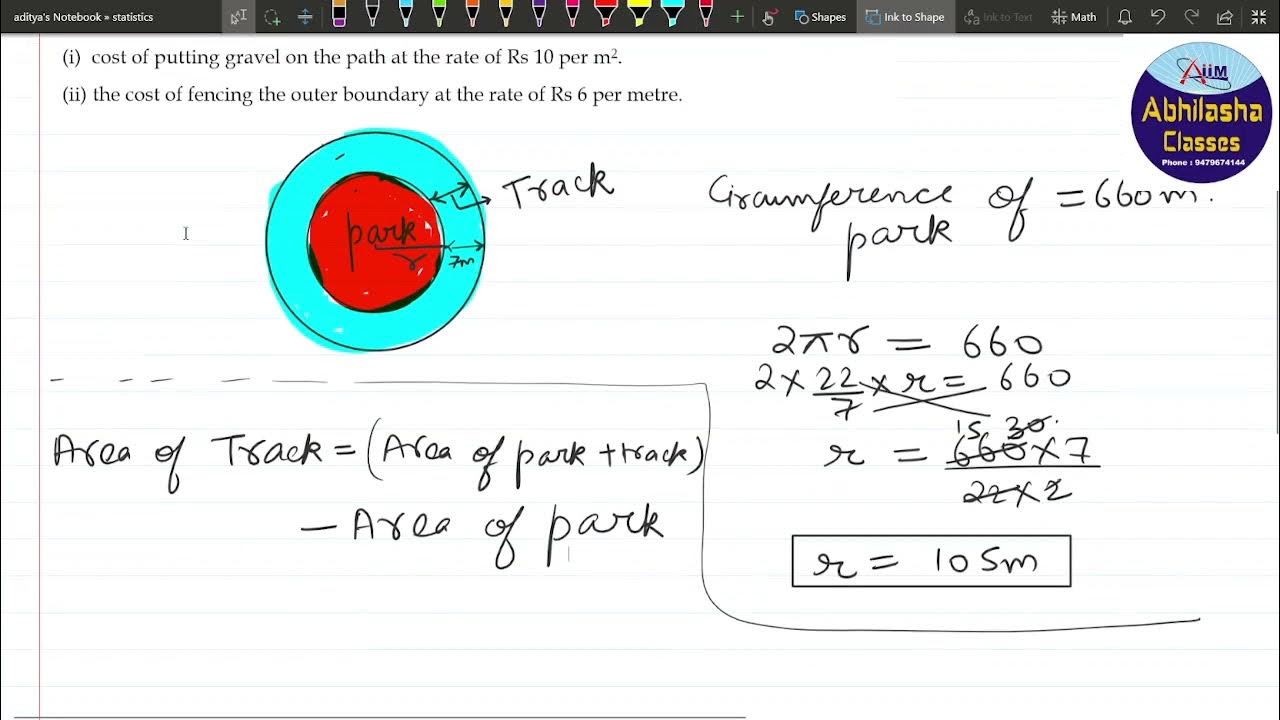 aditya's Notebook » statistics
Shapes
Ink to Shape
Ink to Text
Math
(i) cost of putting gravel on the path at the rate of Rs 10 per m².
(ii) the cost of fencing the outer boundary at the rate of Rs 6 per metre.
AIIM
Abhilasha
Classes
Phone : 9479674144
Track
park
r
7m
Circumference of = 660m.
park
2πr = 660
2 × 22/7 × r = 660
15 30.
r = 660×7
22×2
r = 105m
Area of Track = (Area of park + track)
– Area of park